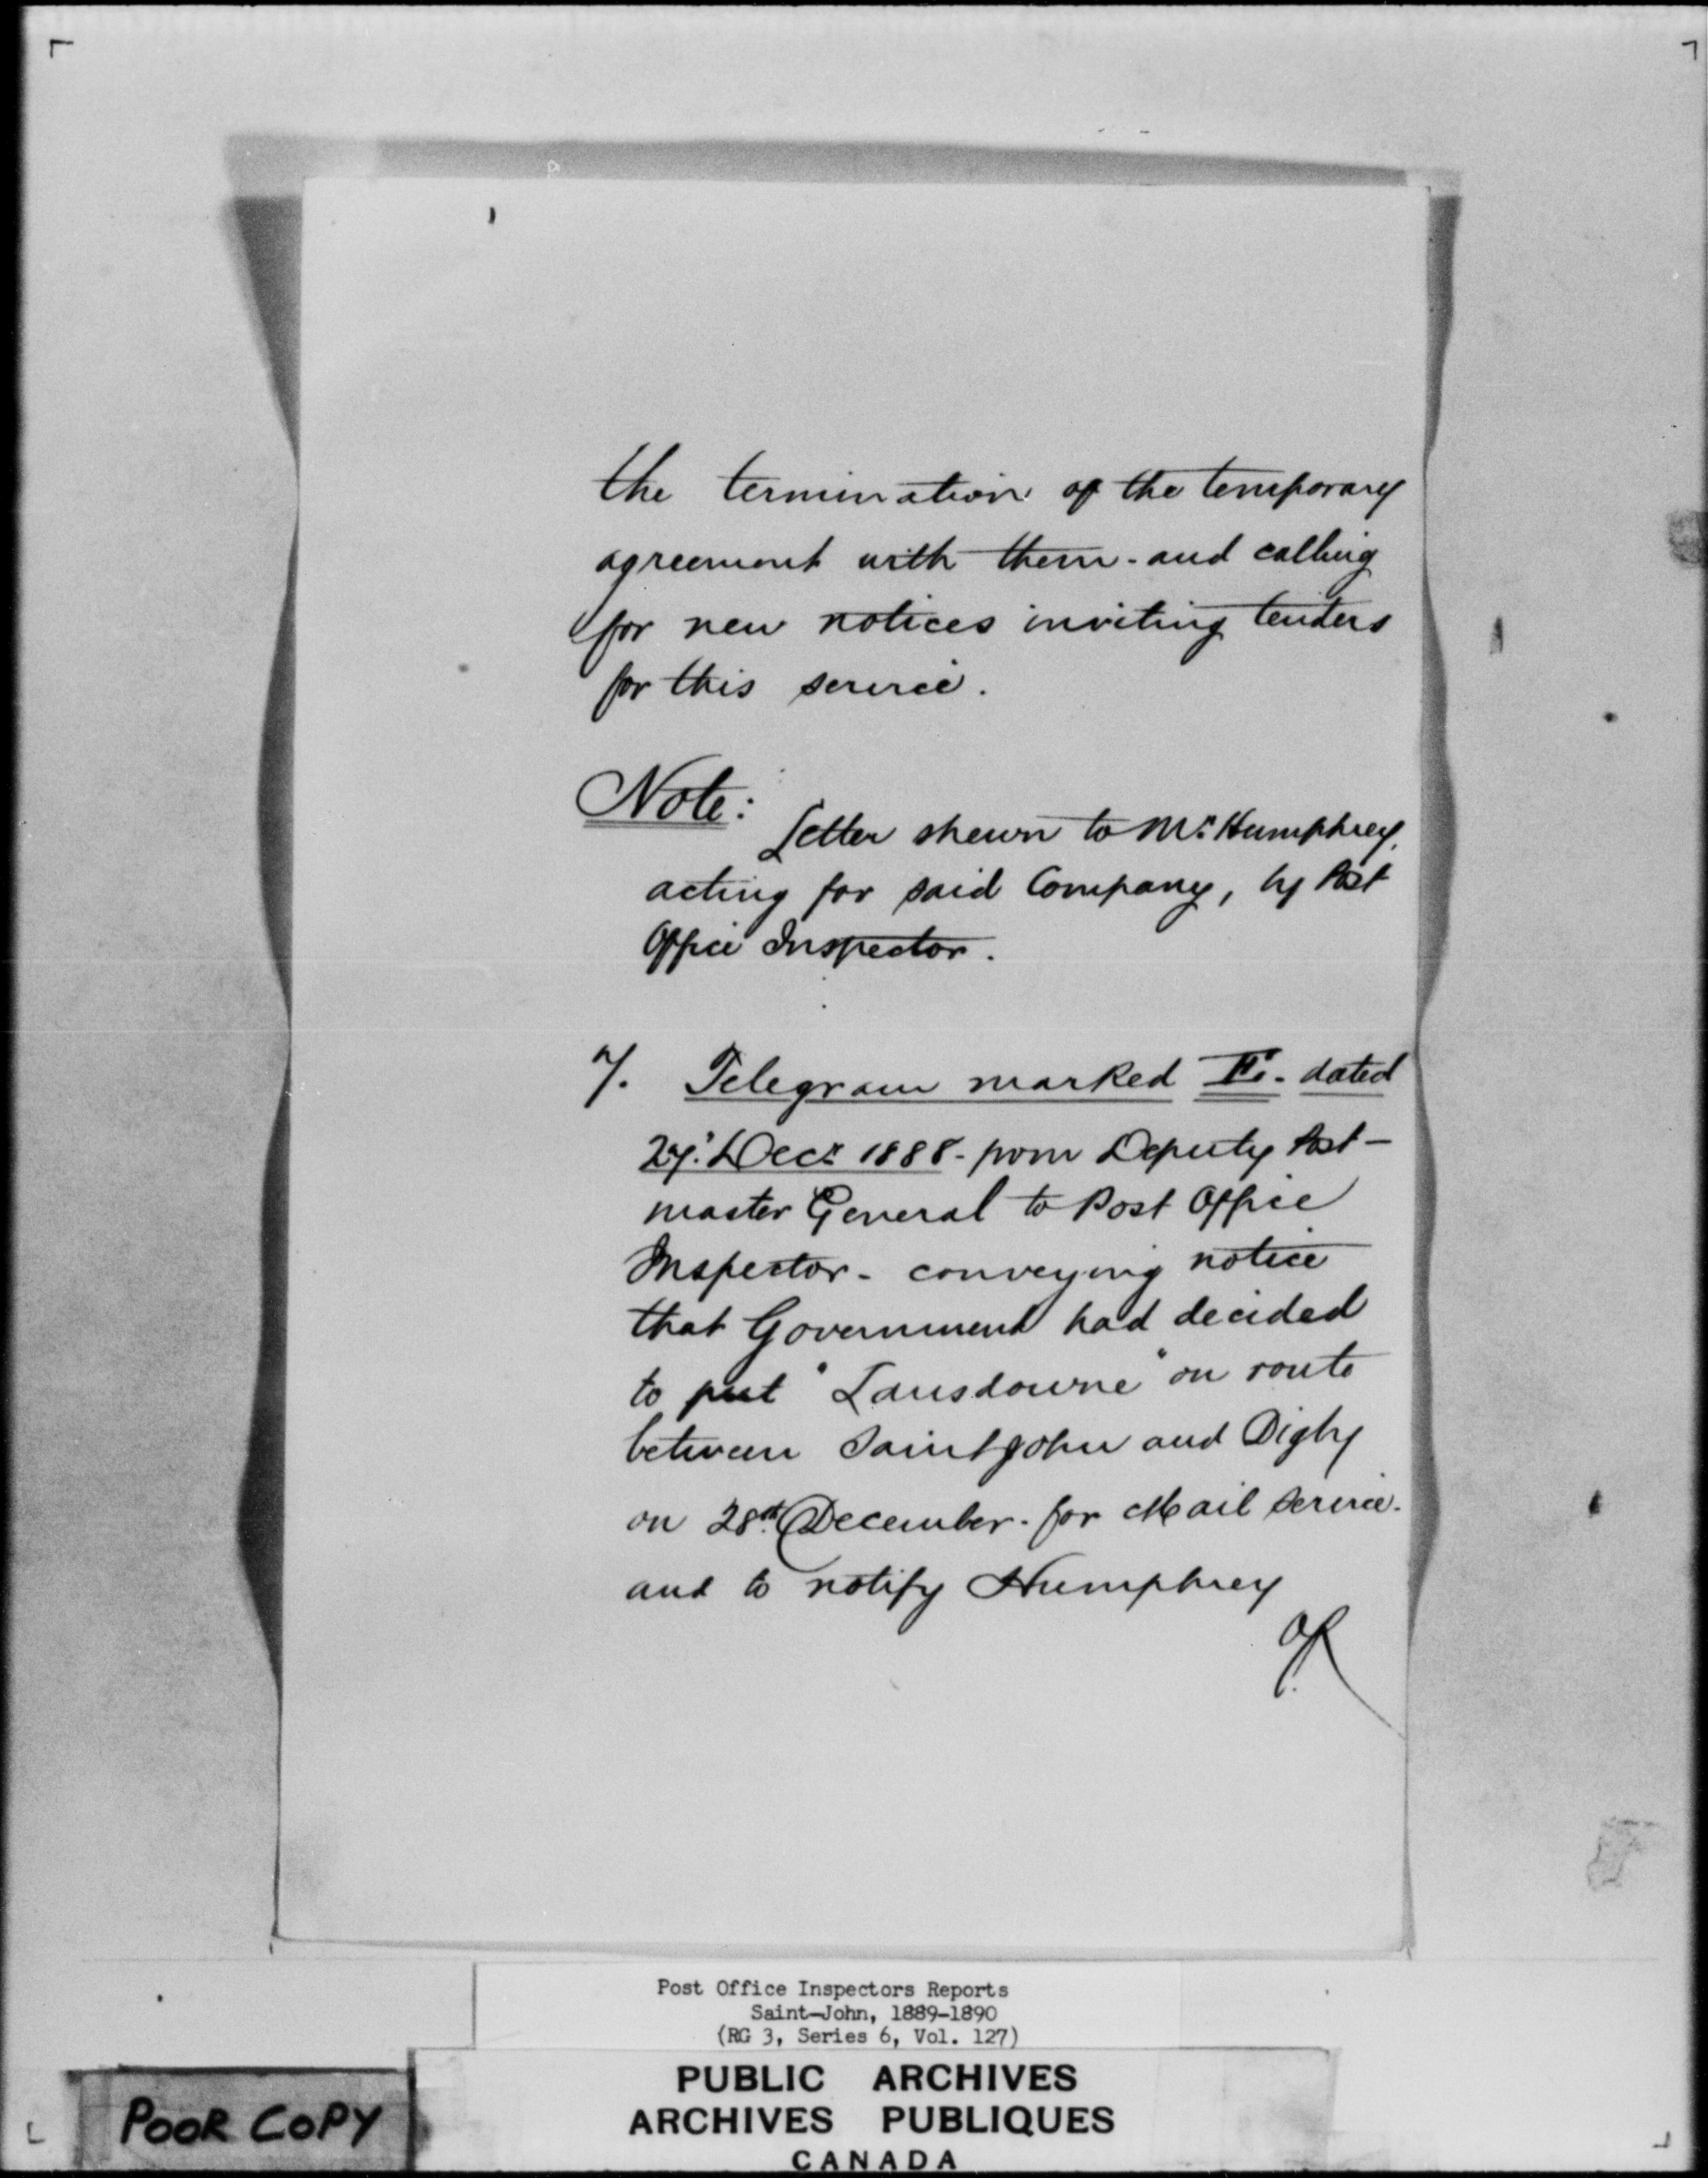 the termination of the temporary
agreement with them - and calling
for new notices inviting tenders
for this service.
Note:
Letter shewn to Mr. Humphrey,
acting for said Company, by Post
Office Inspector.
7. Telegram marked F. - dated
27. Decr 1888 - from Deputy Post-
master General to Post Office
Inspector - conveying notice
that Government had decided
to put "Lansdowne" on route
between Saint John and Digby
on 28th December - for Mail Service -
and to notify Humphrey
Post Office Inspectors Reports
Saint-John, 1889-1890
(RG 3, Series 6, Vol. 127)
PUBLIC ARCHIVES
ARCHIVES PUBLIQUES
CANADA
POOR COPY